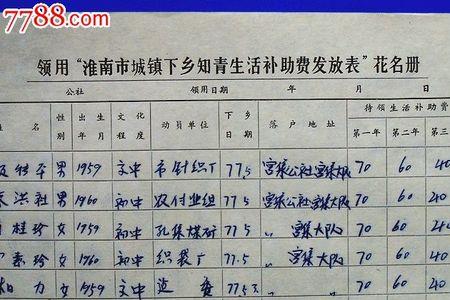 7788.com
领用“淮南市城镇下乡知青生活补助费发放表”花名册
公社 领用日期 年 月 日
名 性别 出生年月 文化程度 动员单位 下乡日期 落户地址 待领生活补助费
第一年 第二年 第三
男 1959 文中 市针织厂 77.5 宫集公社宫集大队 70 60 40
洪社 男 1960 初中 农付业组 77.5 宫集公社宫集大队 70 60 240
桂珍 女 1959 初中 孔集煤矿 77.5 宫集大队 70 60 240
素珍 女 1960 初中 织袋厂 77.5 宫集大队 70 60 40
力 女 1959 文中 77.5 宫集大队 70 60 40